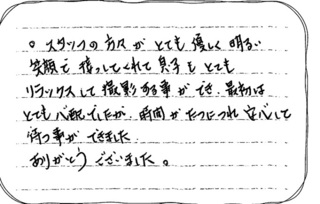 。スタッフの方々がとても優しく明るい
笑顔で接してくれて息子もとても
リラックスして撮影する事ができ、最初は
とても心配でしたが、時間がたつにつれ安心して
待つ事ができました
ありがとうございました。